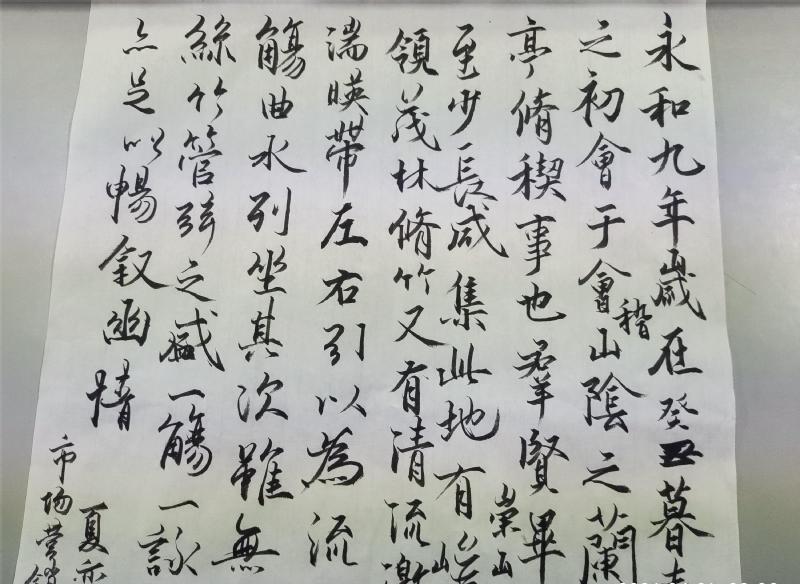 永和九年歲在癸丑暮
之初會于會稽山陰之蘭
亭脩稧事也羣賢畢
至少長咸集此地有崇山
領茂林脩竹又有清流
湍暎帶左右引以為流
觴曲水列坐其次雖無
絲竹管弦之盛一觴一詠
亦足以暢叙幽情
市场营销
夏亦